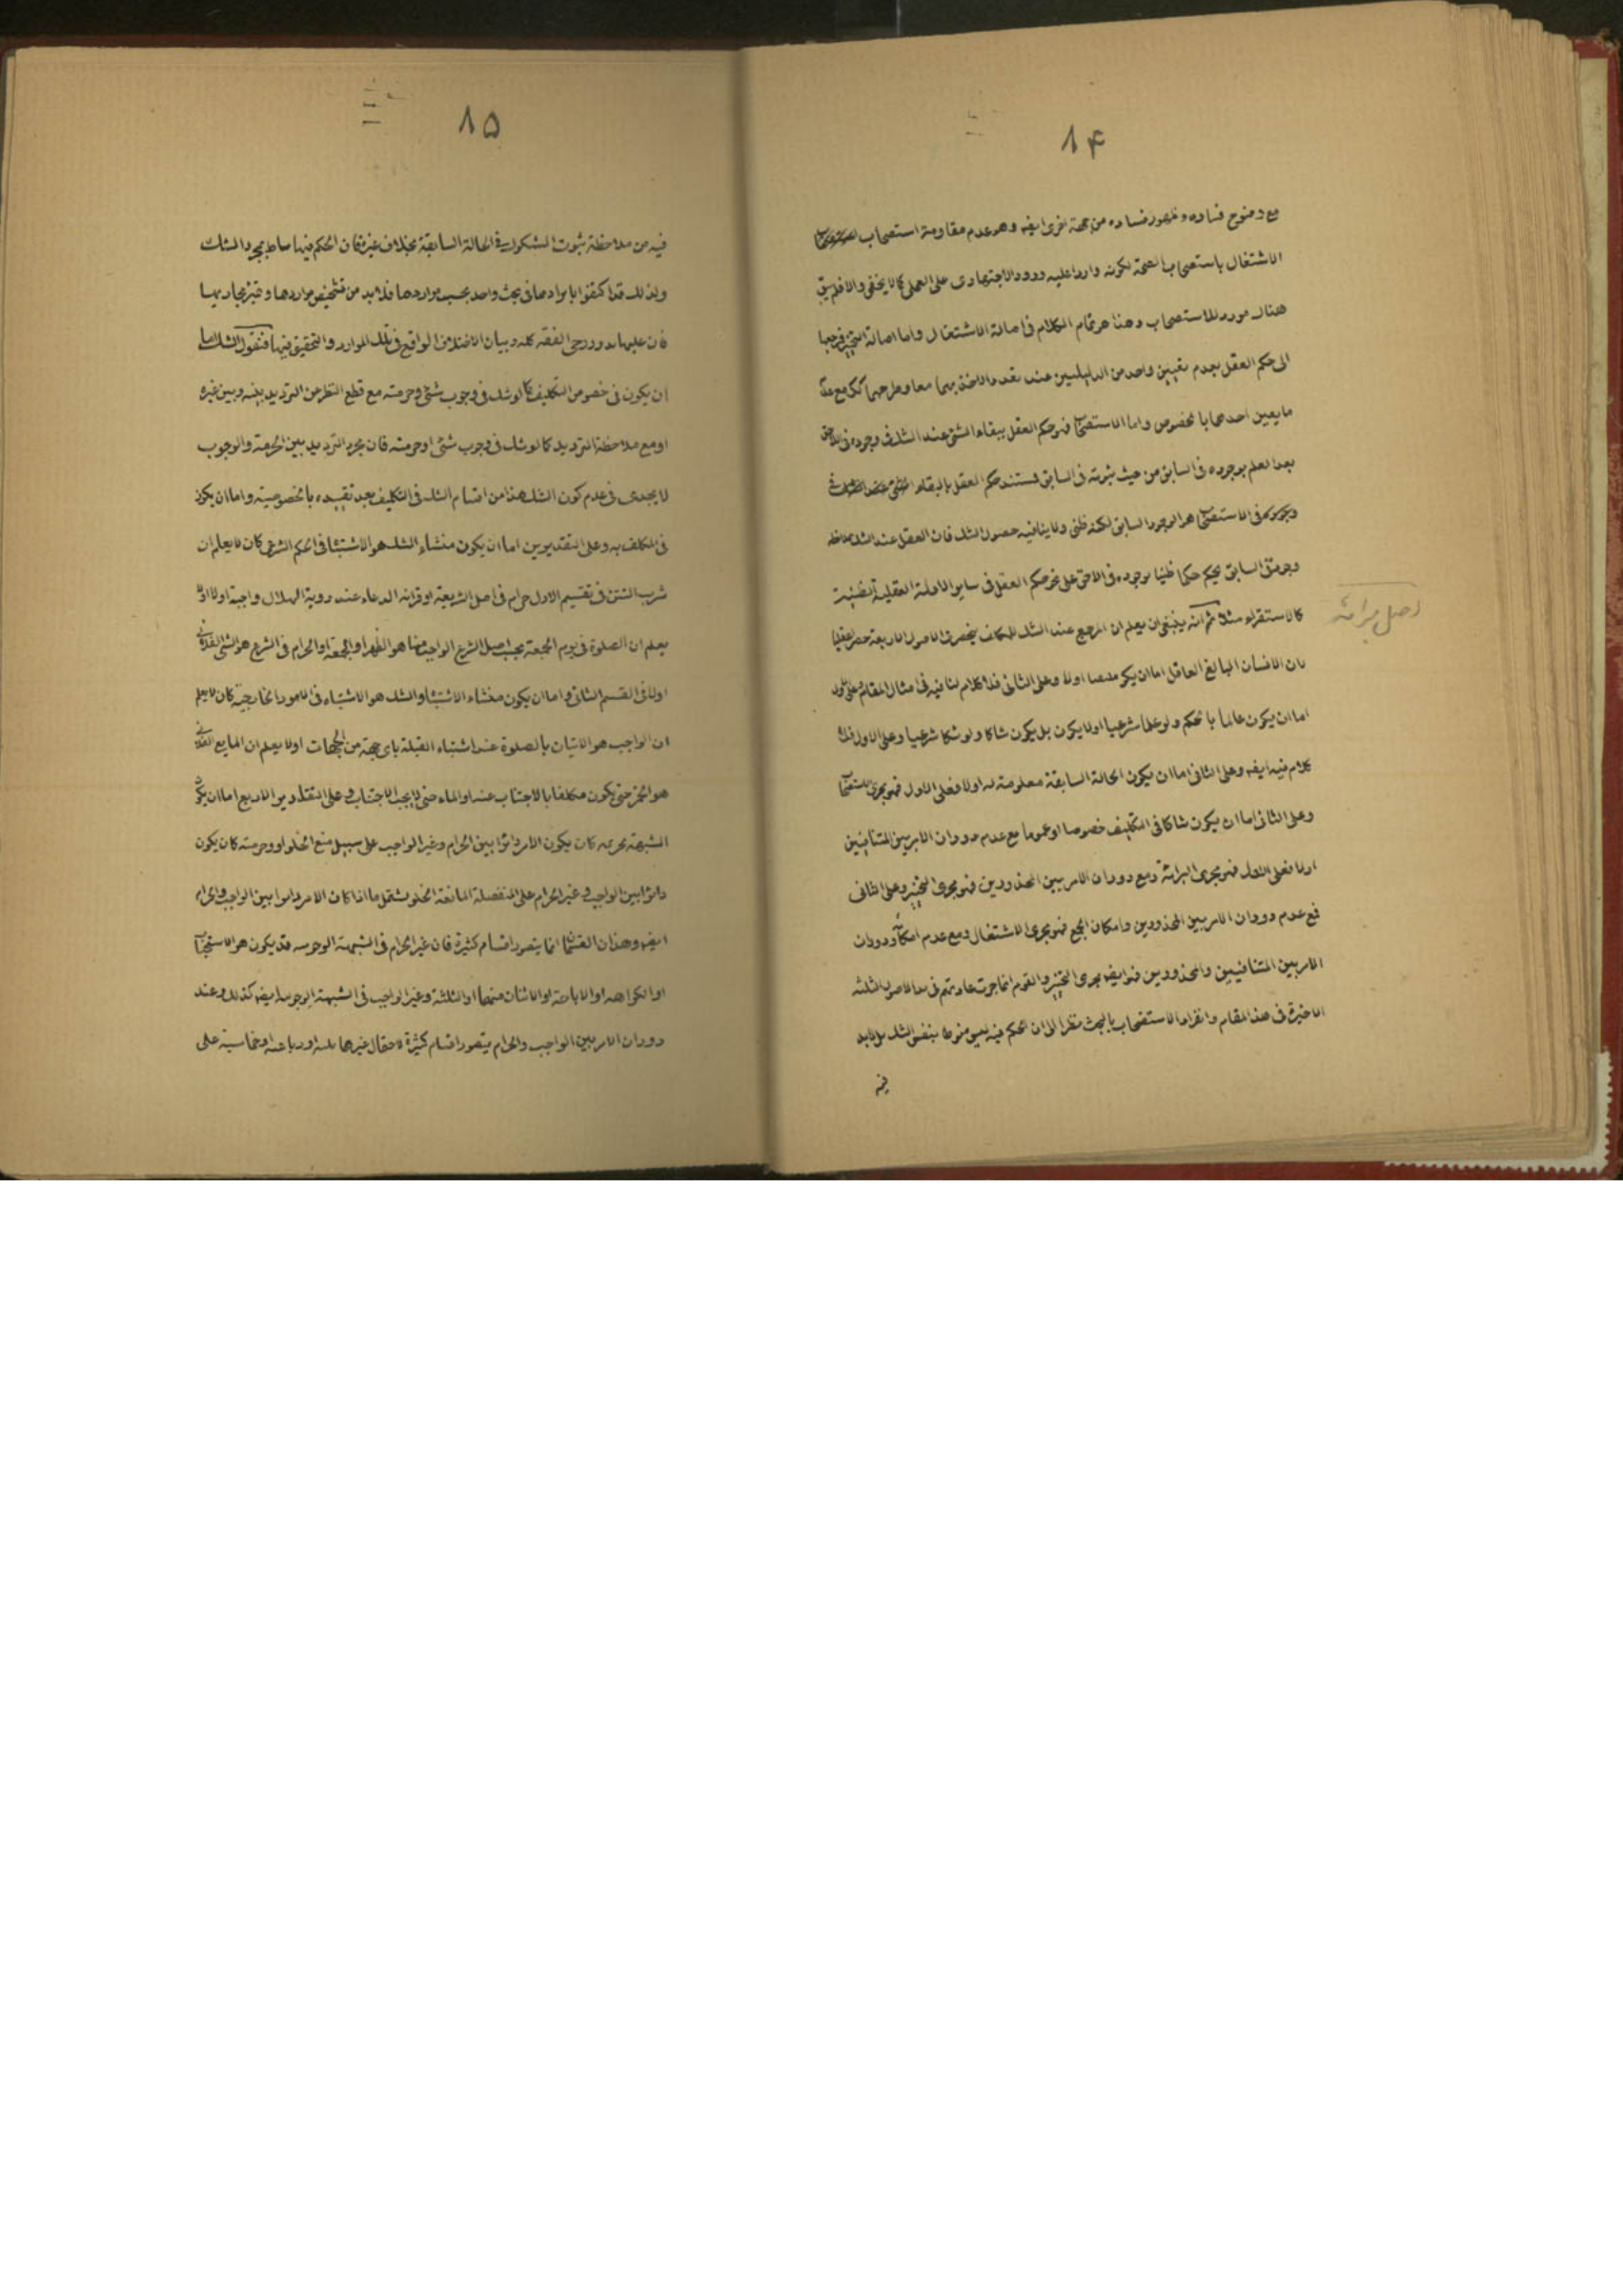 ١۴
مع وضوح فساده وظهور فساده من جهة اخرى ايضه وهو عدم مقاومة استصحاب
الاشتغال باستصحاب الصحة لكونه واردا عليه ورود الاجتهادى على العملى كما لا يخفى والا فلم يبق
هناك مورد للاستصحاب وهذا هو تمام الكلام فى اصالة الاشتغال واما اصالة التخيير فمرجعها
الى حكم العقل بعدم تعيين واحد من الدليلين عند تعدد الاخذ بهما معا وطرحهما كك مع عدم
ما يعين احدهما بالخصوص واما الاستصحاب فهو حكم العقل ببقاء الشئ عند الشك فى وجوده فى اللاحق
بعد العلم بوجوده فى السابق من حيث ثبوته فى السابق فمستند حكم العقل بالبقاء
وجوده فى الاستصحاب هو الوجود السابق لكنه ظنى ولا ينافيه حصول الشك فان العقل عند الشك بملاحظه
وجوده السابق يحكم حكما ظنيا بوجوده فى اللاحق على نحو حكم العقل فى ساير الادلة العقلية الظنية
كالاستقراء مثلا ثم انه ينبغى ان يعلم ان المرجع عند الشك للمكلف ينحصر فى الاصول الاربعة حصرا عقليا
لان الانسان البالغ العاقل اما ان يكون ملتفتا اولا وعلى الثانى فلا كلام لنا فيه فى امثال المقام وعلى الاول
اما ان يكون عالما بالحكم ولو علما شرعيا اولا يكون بل يكون شاكا ولو شكا شرعيا وعلى الاول فلا
كلام فيه ايضه وعلى الثانى اما ان يكون الحالة السابقة معلومة له اولا فعلى الاول فهو مجرى الاستصحاب
وعلى الثانى اما ان يكون شاكا فى التكليف خصوصا او عموما مع عدم دوران الامر بين المتنافيين
اولا فعلى الاول فهو مجرى البرائة ومع دوران الامر بين المحذورين فهو مجرى التخيير وعلى الثانى
فمع عدم دوران الامر بين المحذورين وامكان الجمع فهو مجرى الاشتغال ومع عدم امكانه ودوران
الامر بين المتنافيين والمحذورين فهو ايضه مجرى التخيير والقوم انما جرت عادتهم فى الاصول الثلثه
الاخيرة فى هذا المقام وانفراد الاستصحاب بالبحث نظرا الى ان الحكم فيه ليس منوطا بنفس الشك بل لابد
فيه
اصل برائة
١۵
فيه من ملاحظة ثبوت المشكوك فى الحالة السابقة بخلاف غيره فان الحكم فيها مناط بمجرد الشك
ولذلك قد اكتفوا بايرادها فى بحث واحد بحسب مواردها فلا بد من تشخيص مواردها وتميز مجاريها
فان عليها يدور رحى الفقه كله وبيان الاختلاف الواقع فى تلك الموارد والتحقيق فيها فنقول الشك اما
ان يكون فى خصوص التكليف كما لو شك فى وجوب شئ وحرمته مع قطع النظر عن الترديد بينه وبين غيره
او مع ملاحظة الترديد كما لو شك فى وجوب شئ او حرمته فان مجرد الترديد بين الحرمة والوجوب
لا يجدى فى عدم كون الشك هذا من اقسام الشك فى التكليف بعد تقييده بالخصوصية واما ان يكون
فى المكلف به وعلى التقديرين اما ان يكون منشاء الشك هو الاشتباه فى الحكم الشرعى كان لا يعلم ان
شرب التتن فى تقسيم الاول حرام فى اصل الشريعة او قرائه الدعاء عند روية الهلال واجبة اولا اولا
يعلم ان الصلوة فى يوم الجمعة بحسب اصل الشرع الواجب منها هو الظهر او الجمعة او الحرام فى الشرع هو الشى الفلانى
اولا فى القسم الثانى واما ان يكون منشاء الاشتباه والشك هو الاشتباه فى الامور الخارجية كان لا يعلم
ان الواجب هو الاتيان بالصلوة عند اشتباه القبلة باى جهة من الجهات اولا يعلم ان المايع الفلانى
هو الخمر حتى يكون مكلفا بالاجتناب عنه او الماء حتى لا يجب الاجتناب وعلى التقادير الاربع اما ان يكون
الشبهة تحريميه كان يكون الامر دائرا بين الحرام وغير الواجب على سبيل منع الخلو او وجوبيته كان يكون
دائرا بين الواجب وغير الحرام على المنفصلة المانعة الخلو وتشمل ما اذا كان الامر دائرا بين الواجب والحرام
ايضه وهذان القسمان انما يتصور اقسام كثيرة فان غير الحرام فى الشبهة الوجوبيه قد يكون هو الاستحباب
او الكراهه او الاباحة او الاثنان منهما او الثلثة وغير الواجب فى الشبهة الوجوبيه ايضه كذلك وعند
دوران الامر بين الواجب والحرام يتصور اقسام كثيرة لاحتمال غيرهما ثلاثه ورباعيه وخماسيه على